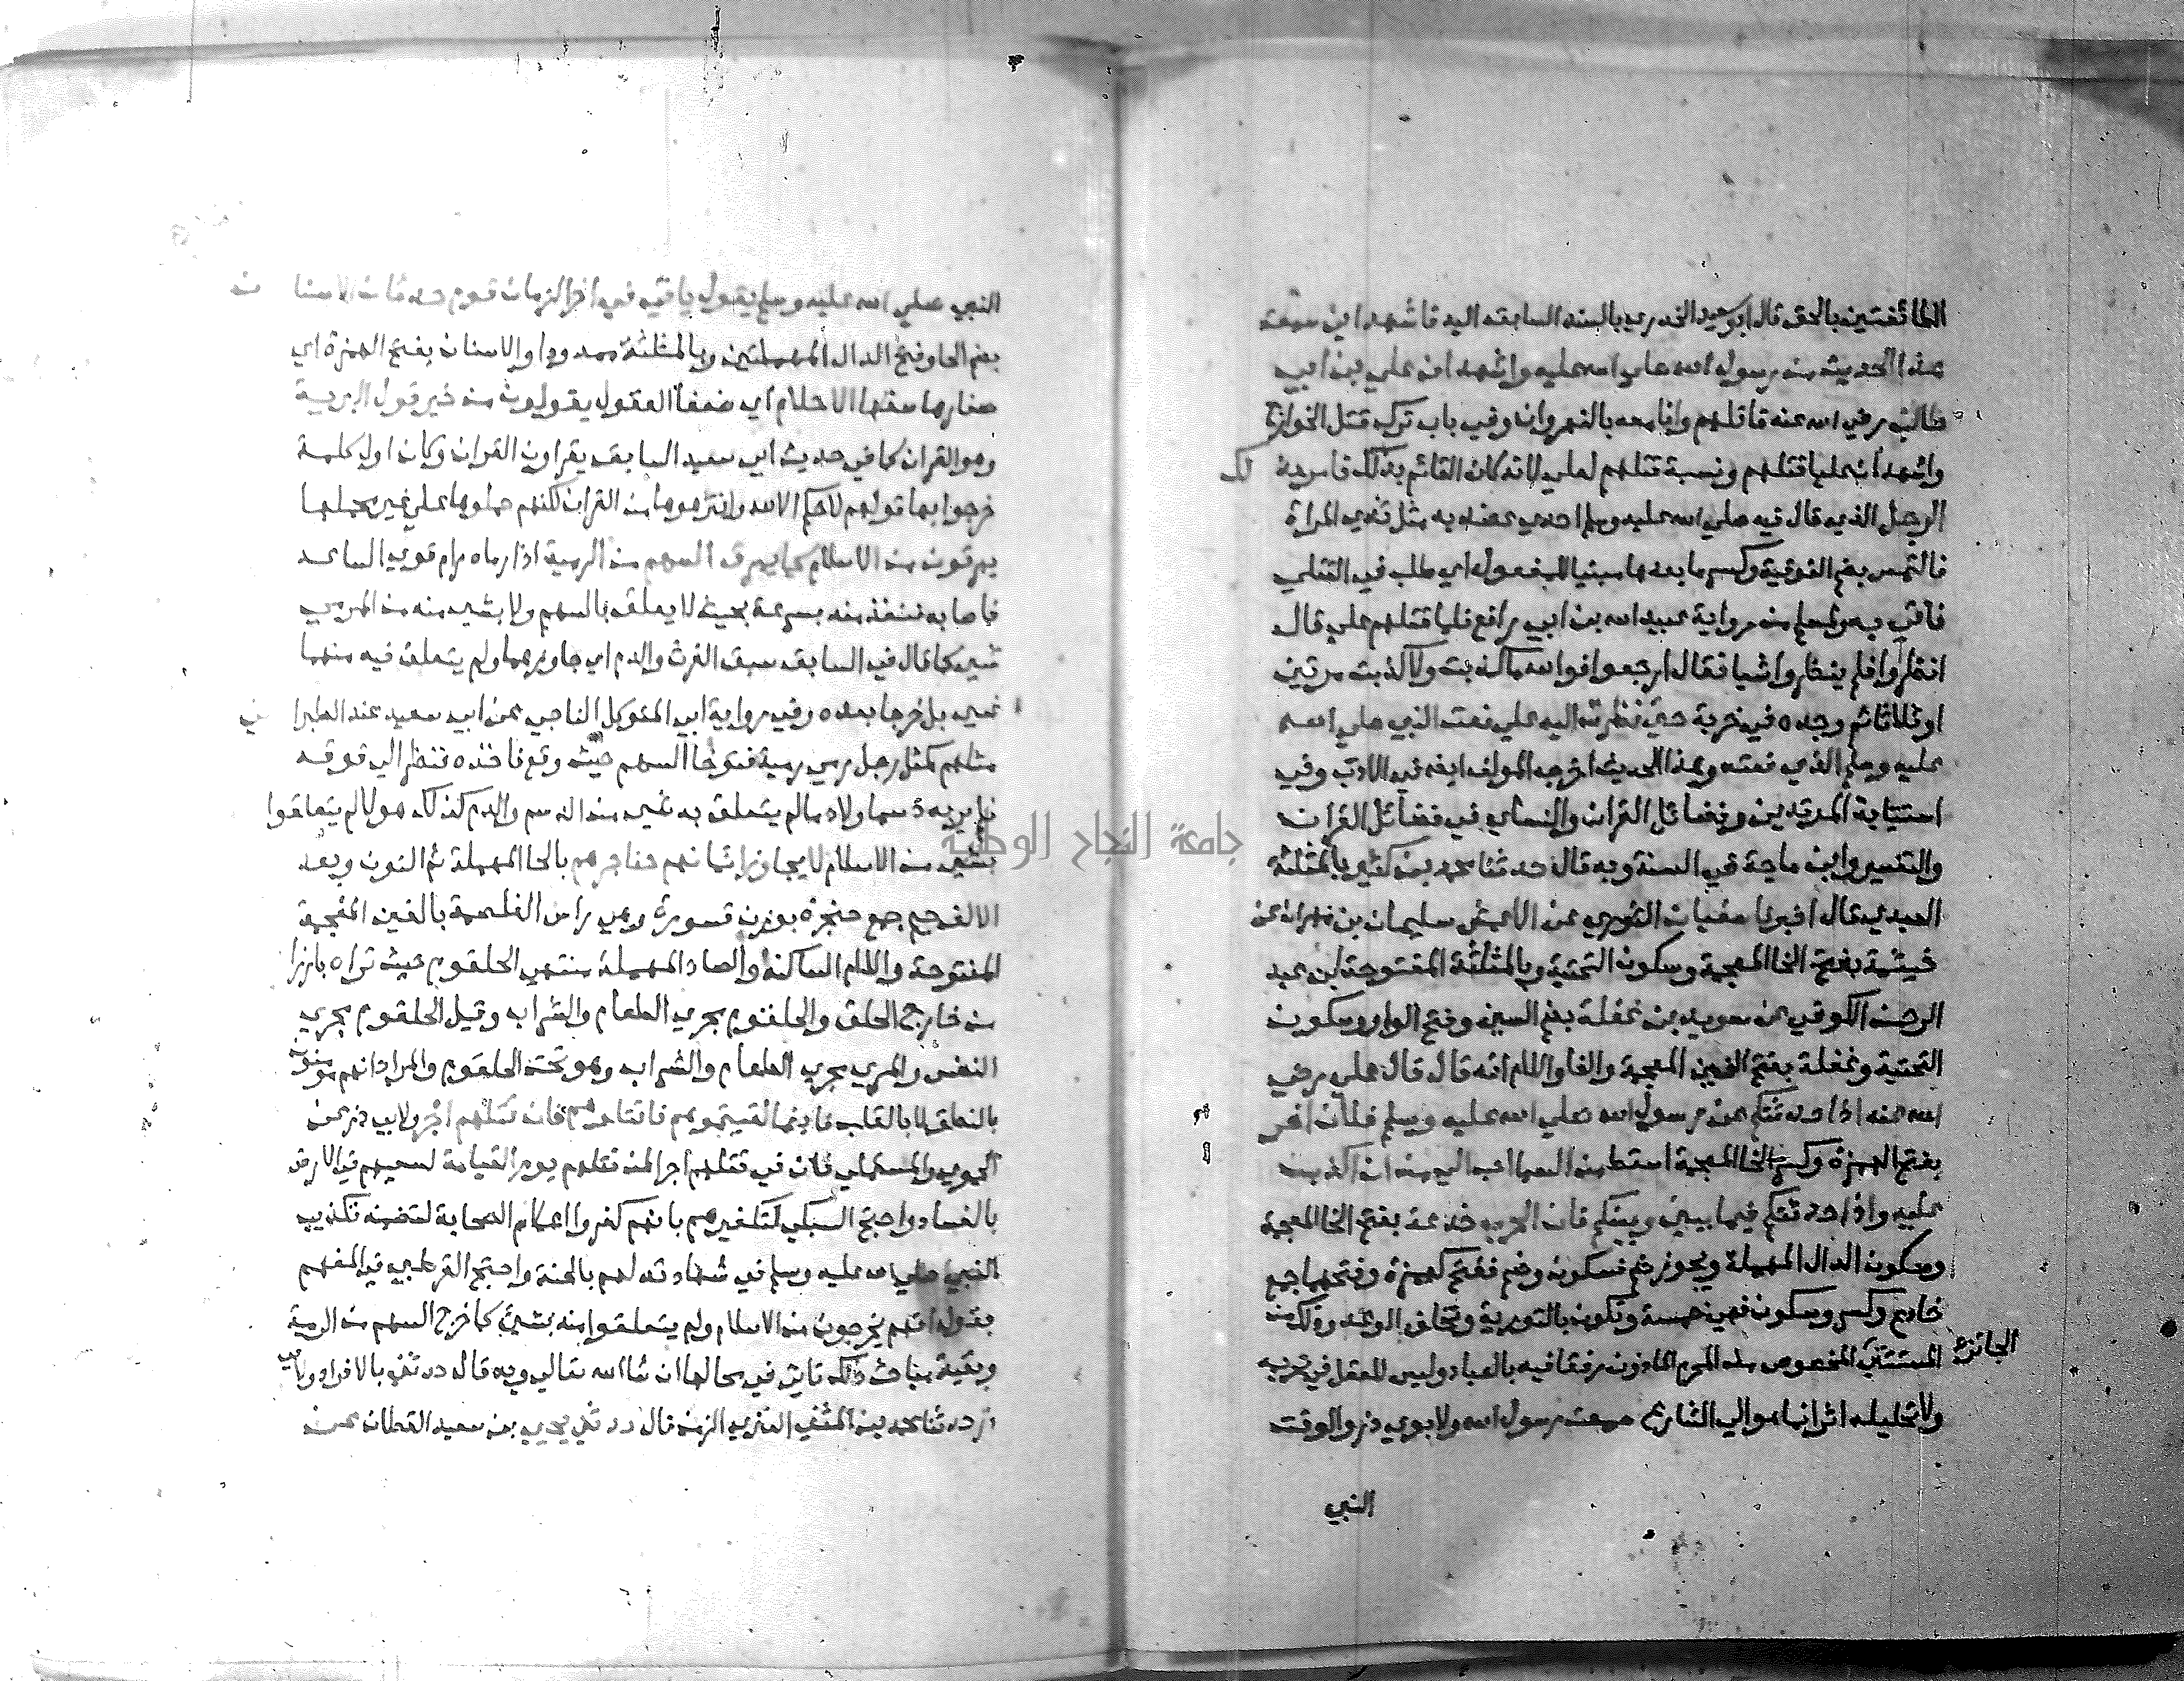 الطائفتين بالحق قال ابو سعيد الخدري بالسند السابق اليه فاشهد اني سمعت
هذا الحديث من رسول الله صلي الله عليه واشهد ان علي بن ابي
طالب رضي الله عنه قاتلهم وانا معه بالنهروان وفي باب ترك قتل الخوارج
واشهد ان عليا قتلهم ونسبة قتلهم لعلي لانه كان القائم بذلك فامر بذلك
الرجل الذي قال فيه صلي الله عليه وسلم احدي عضديه مثل ثدي المراة
فالتمس بضم الفوقية وكسر ما بعدها مبنيا للمفعول اي طلب في القتلي
فاتي به ولمسلم من رواية عبيد الله بن ابي رافع فلما قتلهم علي قال
انظروا فلم ينظروا شيا فقال ارجعوا فوالله ما كذبت ولا كذبت مرتين
او ثلاثا ثم وجده في خربة حتي نظرت اليه علي نعت النبي صلي الله
عليه وسلم الذي نعته وهذا الحديث اخرجه المولف ايضا في الادب وفي
استتابة المرتدين وفضائل القران والنساي في فضائل القران
والتفسير وابن ماجة في السنة وبه قال حدثنا محمد بن كثير بالمثلثة
العبدي قال اخبرنا سفيان الثوري عن الاعمش سليمان بن مهران عن
خيثمة بفتح الخا المعجمة وسكون التحتية وبالمثلثة المفتوحة ابن عبد
الرحمن الكوفي عن سويد بن غفلة بضم السين وفتح الواو وسكون
التحتية وغفلة بفتح الغين المعجمة والفا واللام انه قال قال علي رضي
الله عنه اذا حدثتكم عن رسول الله صلي الله عليه وسلم فلان اخر
بفتح الهمزة وكسر الخا المعجمة اسقط من السما احب الي من ان اكذب
عليه واذا حدثتكم فيما بيني وبينكم فان الحرب خدعة بفتح الخا المعجمة
وسكون الدال المهملة ويجوز ضم فسكون وضم ففتح كهمزة وفتحهما جمع
خادع وكسر وسكون فهي خمسة وتكون بالتورية وتخلف الوعد وذلك من
الجائز المستثني المخصوص من المحرم الماذون رفقا فيه بالعباد وليس للعقل في تحريمه
ولا تحليله اثر انما هو الي الشارع سمعت رسول الله ولابوي ذر والوقت
النبي
النبي صلي الله عليه وسلم يقول ياتي في اخر الزمان قوم حدثا الاسنان
بضم الحا وفتح الدال المهملتين وبالمثلثة ممدودا والاسنان بفتح الهمزة اي
صغارها سفها الاحلام اي ضعفا العقول يقولون من خير قول البرية
وهو القران كما في حديث ابي سعيد السابق يقراون القران وكان اول كلمة
خرجوا بها قولهم لا حكم الا لله وانتزعوها من القران لكنهم حملوها علي غير محملها
يمرقون من الاسلام كما يمرق السهم من الرمية اذا رماه رام قوي الساعد
فاصابه فنفذ منه بسرعة بحيث لا يعلق بالسهم ولا بشي منه من المرمي
شي كما قال في السابق سبق الفرث والدم اي جاوزهما ولم يتعلق فيه منهما
شي بل خرجا بعده وفي رواية ابي المتوكل الناجي عن ابي سعيد عند الطبراني
مثلهم كمثل رجل رمي رمية فتوخا السهم حيث وقع فاخذه فنظر الي فوقه
فلم ير به دسما ولا دما لم يتعلق به شي من الدسم والدم كذلك هولا لم يتعلقوا
بشي من الاسلام لا يجاوز ايمانهم حناجرهم بالحا المهملة ثم النون وبعد
الالف جيم جمع حنجرة بوزن قسورة وهي راس الغلصمة بالغين المعجمة
المفتوحة واللام الساكنة والصاد المهملة منتهي الحلقوم حيث تراه بارزا
من خارج الحلق والحلقوم مجري الطعام والشراب وقيل الحلقوم مجري
النفس والمري مجري الطعام والشراب وهو تحت الحلقوم والمراد انهم مومنون
بالنطق لا بالقلب فاينما لقيتموهم فاقتلوهم فان قتلهم اجر ولابي ذر عن
الحموي والمستملي فان في قتلهم اجرا لمن قتلهم يوم القيامة لسعيهم في الارض
بالفساد واحتج السبكي لتكفيرهم بانهم كفروا اعلام الصحابة لتضمنه تكذيب
النبي صلي الله عليه وسلم في شهادته لهم بالجنة واحتج القرطبي في المفهم
بقوله انهم يخرجون من الاسلام ولم يتعلقوا منه بشي كما خرج السهم من الرمية
وبقية مباحث ذلك تاتي في محالها ان شا الله تعالي وبه قال حدثني بالافراد ولابي
ذر حدثنا محمد بن المثني العنزي الزمن قال حدثني يحيي بن سعيد القطان عن
جامعة النجاح الوطنية